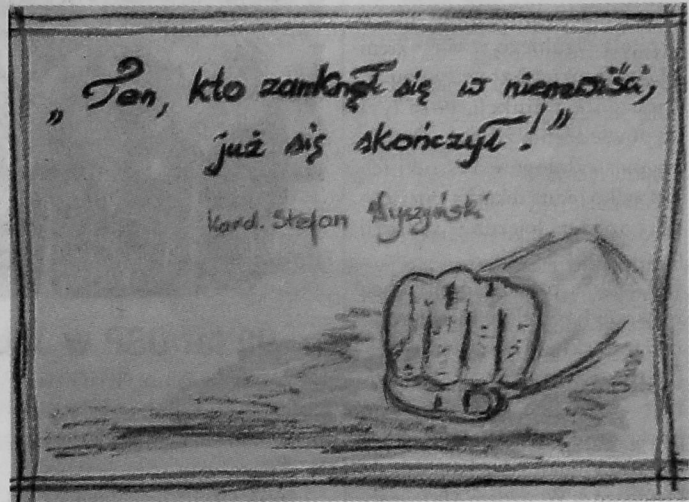 „Ten, kto zamknął się w nienawiści,
już się skończył!”
Kard. Stefan Wyszyński